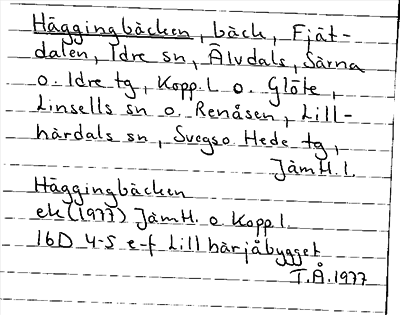 Häggingbäcken, bäck, Fjät-
dalen, Idre sn, Älvdals, Särna
o. Idre tg, Kopp. l o. Glöte,
Linsells sn o. Renåsen, Lill-
härdals sn, Svegs o Hede tg,
Jämtl. l.
Häggingbäcken
ek (1977) Jämtl. o Kopp l.
16D 4-5 e-f Lillhärjåbygget
T.Å. 1977